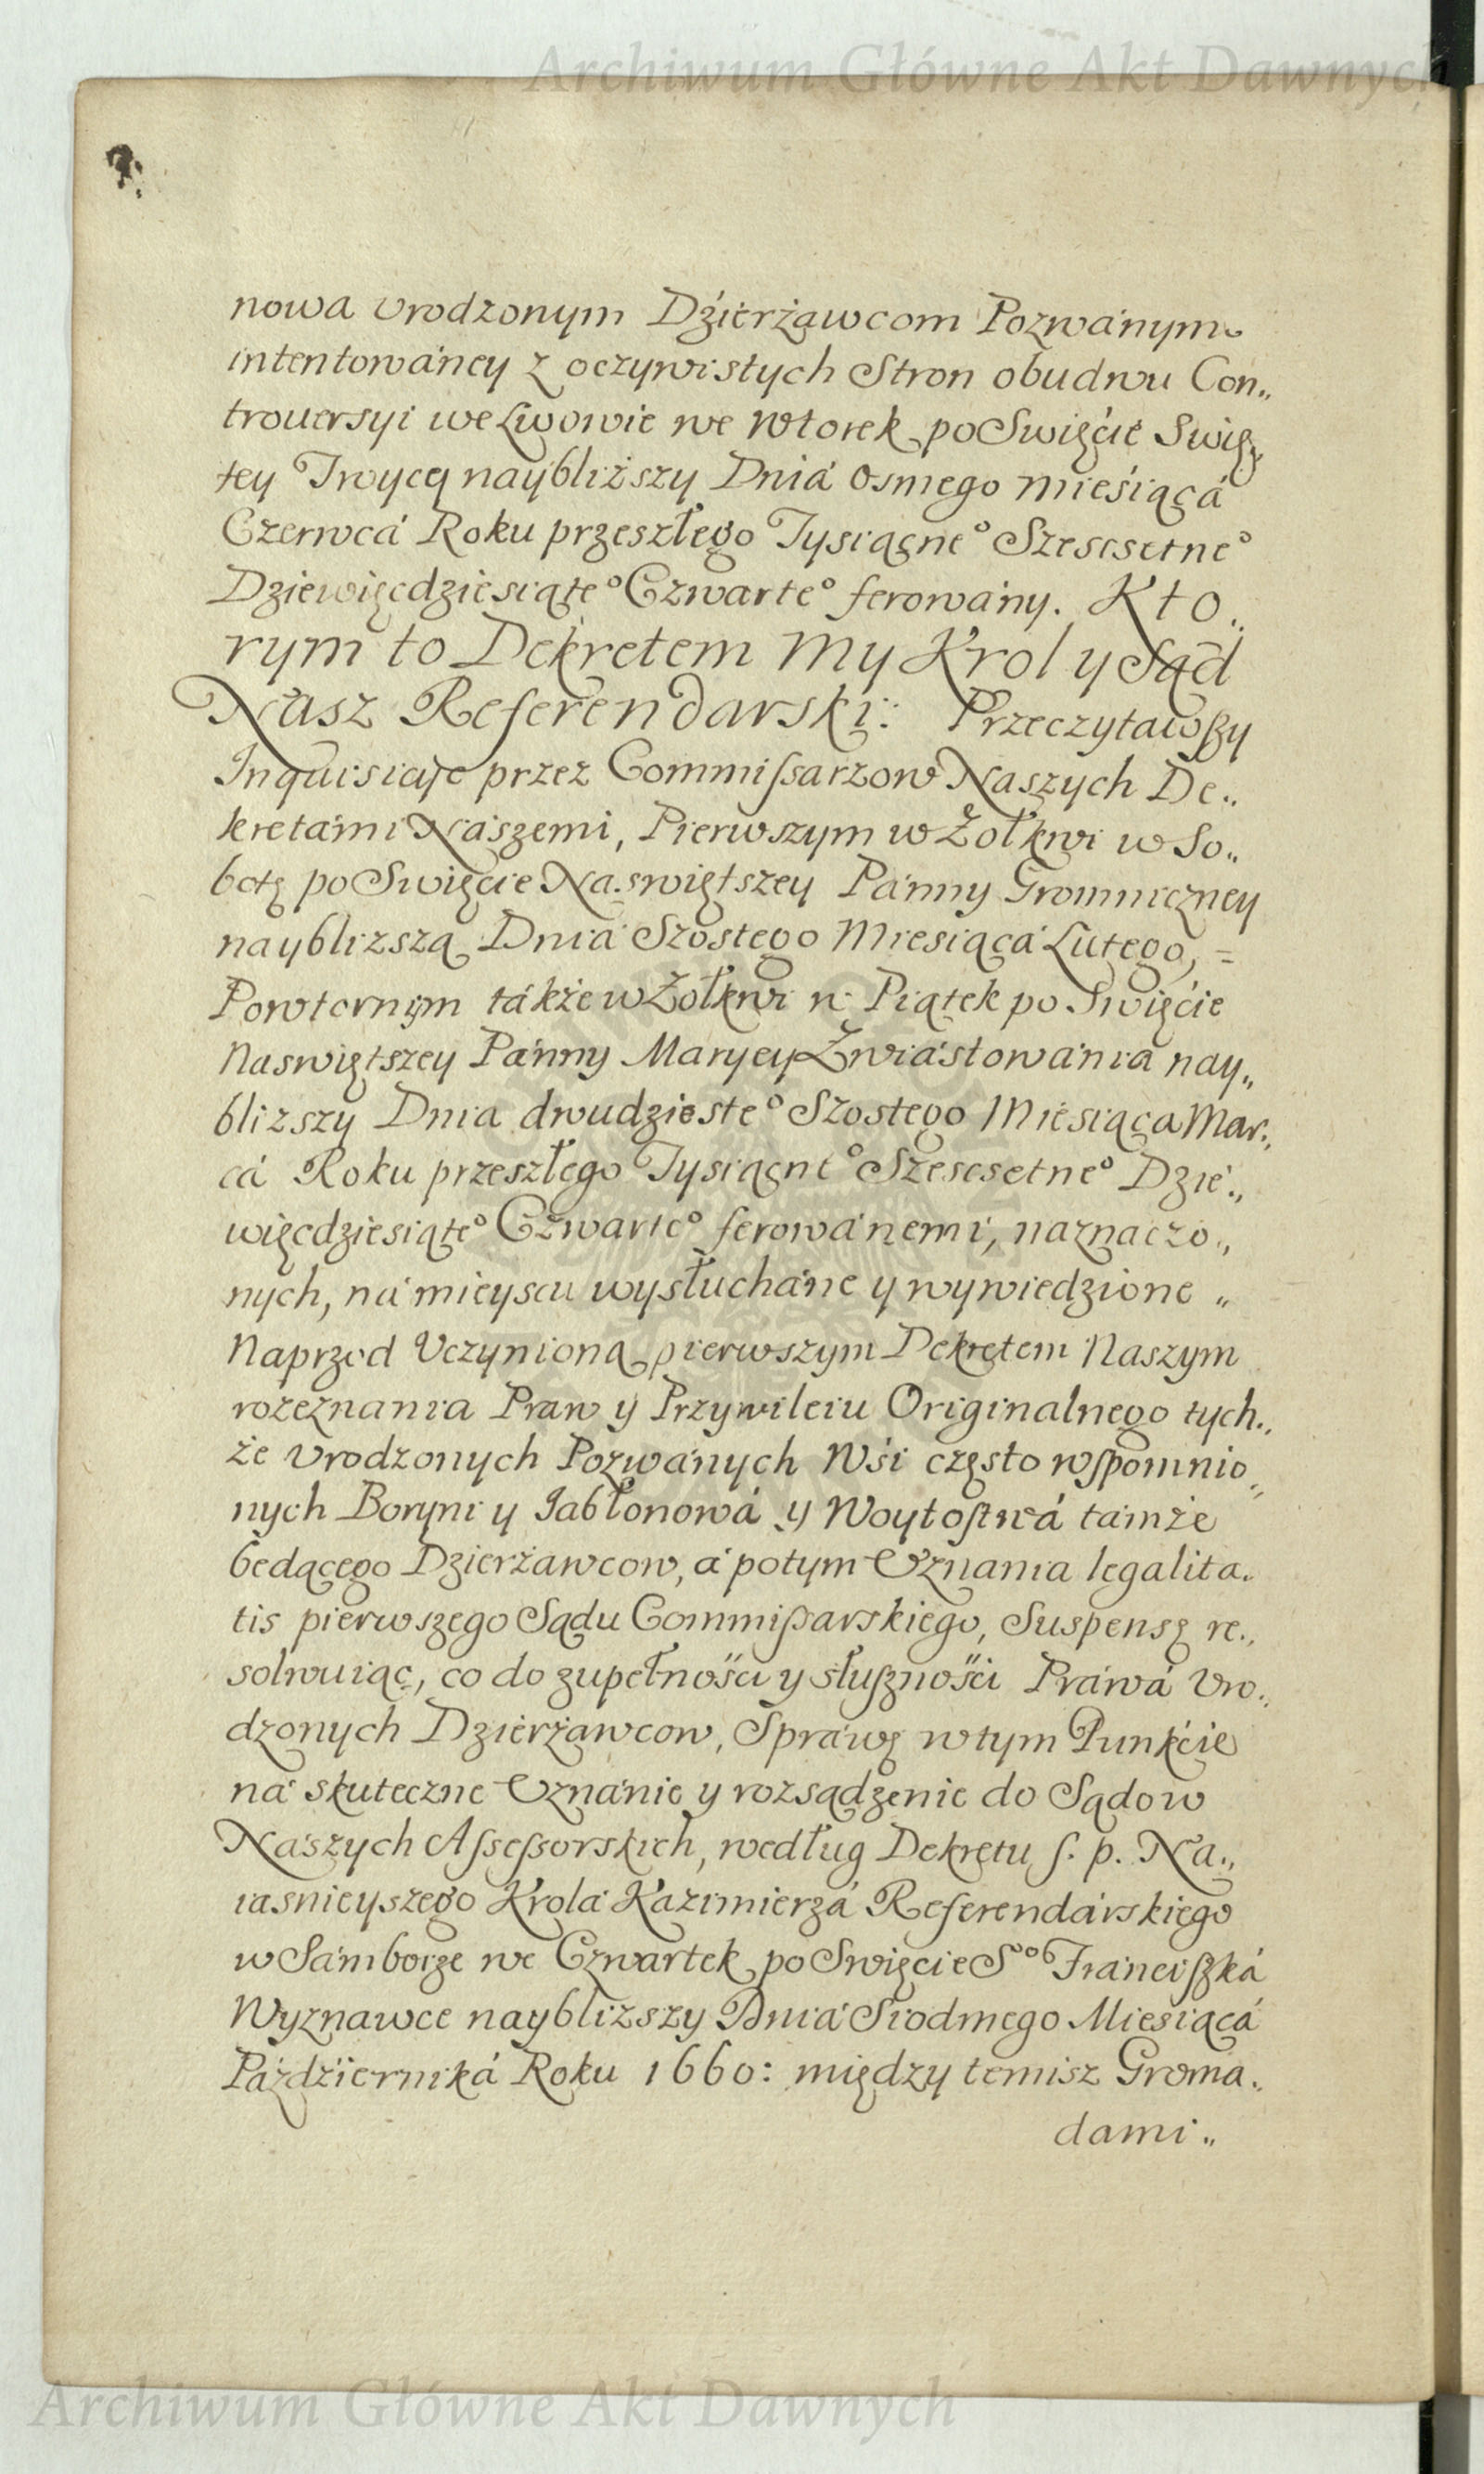 Archiwum Główne Akt Dawnych
nowa Vrodzonym Dźierżáwcom Pozwánym
intentowáney z oczywistych Stron obudwu Con„
trouersyi we Lwowie we Wtorek po Swięćie Swię„
tey Troycy naybliższy Dniá Osmego Mieśiącá
Czerwcá Roku przeszłego Tysiącne° Szescsetne°
Dziewięcdziesiąte° Czwarte° ferowány. Kto„
rym to Dekretem My Krol y Sąd
Nász Referendarski: Przeczytawszy
Inquisicÿe przez Commissarzow Naszych De„
kretámi Nászemi, Pierwszym w Żołkwi w So„
botę po Swięcie Naswiętszey Pánny Gromniczney
naybliższą Dniá Szostego Miesiącá Lutego, =
Powtornym tákże w Żołkwi w Piątek po Swięćie
Naswiętszey Pánny Maryey Zwiástowánia nay„
bliższy Dnia dwudzieste° Szostego Miesiąca Mar„
cá Roku przeszłego Tysiącne° Szescsetne° Dzie„
więcdziesiąte° Czwarte° ferowánemi, náznaczo„
nych, ná mieyscu wysłucháne y wywiedzione „
Naprzod Vczynioną pierwszym Dekretem Naszym
rozeznania Praw y Przywileiu Originalnego tych„
że Vrodzonych Pozwánych Wśi często wspomnio„
nych Boryni y Jabłonowá y Woytostwá tamże
będącego Dzierżawcow, á potym Vznania legalita„
tis pierwszego Sądu Commissarskiego, Suspensę re„
solwuiąc, co do zupełnośći y słusznośći Práwá Vro„
dzonych Dzierżawcow, Spráwę w tym Punkćie
ná skuteczne Vznánie y rozsądzenie do Sądow
Nászych Assessorskich, według Dekretu ś. p. Na„
iasnieyszego Krolá Kazimierzá Referendárskiego
w Sámborze we Czwartek po Swięcie S° Fránciszká
Wyznawce naybliższy Dniá Siodmego Miesiącá
Páździerniká Roku 1660: między temisz Groma„
dami„
Archiwum Główne Akt Dawnych